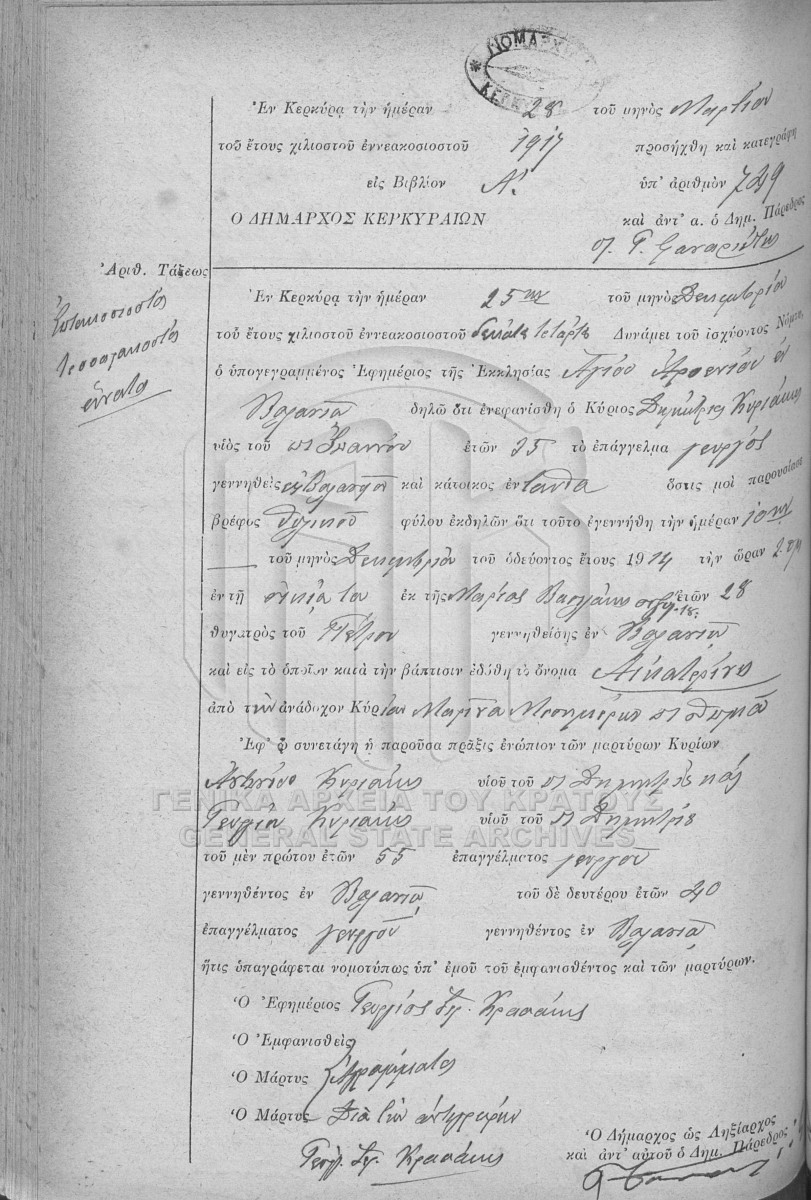 ΝΟΜΑΡΧ
ΚΕΡΚΥ
Ἐν Κερκύρᾳ τὴν ἡμέραν 28 τοῦ μηνὸς Μαρτίου
τοῦ ἔτους χιλιοστοῦ ἐννεακοσιοστοῦ 1917 προσήχθη καὶ κατεγράφη
εἰς Βιβλίον Α'. ὑπ' ἀριθμὸν 749
Ο ΔΗΜΑΡΧΟΣ ΚΕΡΚΥΡΑΙΩΝ καὶ ἀντ' α. ὁ Δημ. Πάρεδρος
Ἀριθ. Τάξεως
Ἑπτακοσιοστὸς
τεσσαρακοστὸς
ἔννατος
Ἐν Κερκύρᾳ τὴν ἡμέραν 25ην τοῦ μηνὸς Δεκεμβρίου
τοῦ ἔτους χιλιοστοῦ ἐννεακοσιοστοῦ δεκάτου τετάρτου Δυνάμει τοῦ ἰσχύοντος Νόμου,
ὁ ὑπογεγραμμένος Ἐφημέριος τῆς Ἐκκλησίας Ἁγίου Ἀρσενίου ἐν
δηλῶ ὅτι ἐνεφανίσθη ὁ Κύριος Δημήτριος Κυριάκης
υἱὸς τοῦ π Ἰωάννου ἐτῶν 35 τὸ ἐπάγγελμα γεωργὸς
γεννηθεὶς ἐν καὶ κάτοικος ἐνταῦθα ὅστις μοὶ παρουσίασε
βρέφος θηλυκοῦ φύλου ἐκδηλῶν ὅτι τοῦτο ἐγεννήθη τὴν ἡμέραν 10ην
τοῦ μηνὸς Δεκεμβρίου τοῦ ὁδεύοντος ἔτους 1914 τὴν ὥραν 2
ἐν τῇ οἰκίᾳ του ἐκ τῆς Μαρίας Βασιλάκη ἐτῶν 28
θυγατρὸς τοῦ Πέτρου γεννηθείσης ἐν
καὶ εἰς τὸ ὁποῖον κατὰ τὴν βάπτισιν ἐδόθη τὸ ὄνομα Αἰκατερίνη
ἀπὸ τὴν ἀνάδοχον Κυρίαν π Θωμᾶ
Ἐφ' ᾧ συνετάγη ἡ παροῦσα πρᾶξις ἐνώπιον τῶν μαρτύρων Κυρίων
Ἀντωνίου Κυριάκη υἱοῦ τοῦ π Δημητρίου
ΓΕΝΙΚΑ ΑΡΧΕΙΑ ΤΟΥ ΚΡΑΤΟΥΣ
Γεωργίου Κυριάκη υἱοῦ τοῦ π Δημητρίου
GENERAL STATE ARCHIVES
τοῦ μὲν πρώτου ἐτῶν 55 ἐπαγγέλματος γεωργοῦ
γεννηθέντος ἐν τοῦ δὲ δευτέρου ἐτῶν 40
ἐπαγγέλματος γεωργοῦ γεννηθέντος ἐν
ἥτις ὑπαγράφεται νομοτύπως ὑπ' ἐμοῦ τοῦ ἐμφανισθέντος καὶ τῶν μαρτύρων.
Ὁ Ἐφημέριος Γεώργιος Σπ. Κρασάκης
Ὁ Ἐμφανισθεὶς
Ὁ Μάρτυς Ἀγράμματοι
Ὁ Μάρτυς Διὰ τὴν ἀντιγραφὴν
Γεώργ. Σπ. Κρασάκης
Ὁ Δήμαρχος ὡς Ληξίαρχος
καὶ ἀντ' αὐτοῦ ὁ Δημ. Πάρεδρος